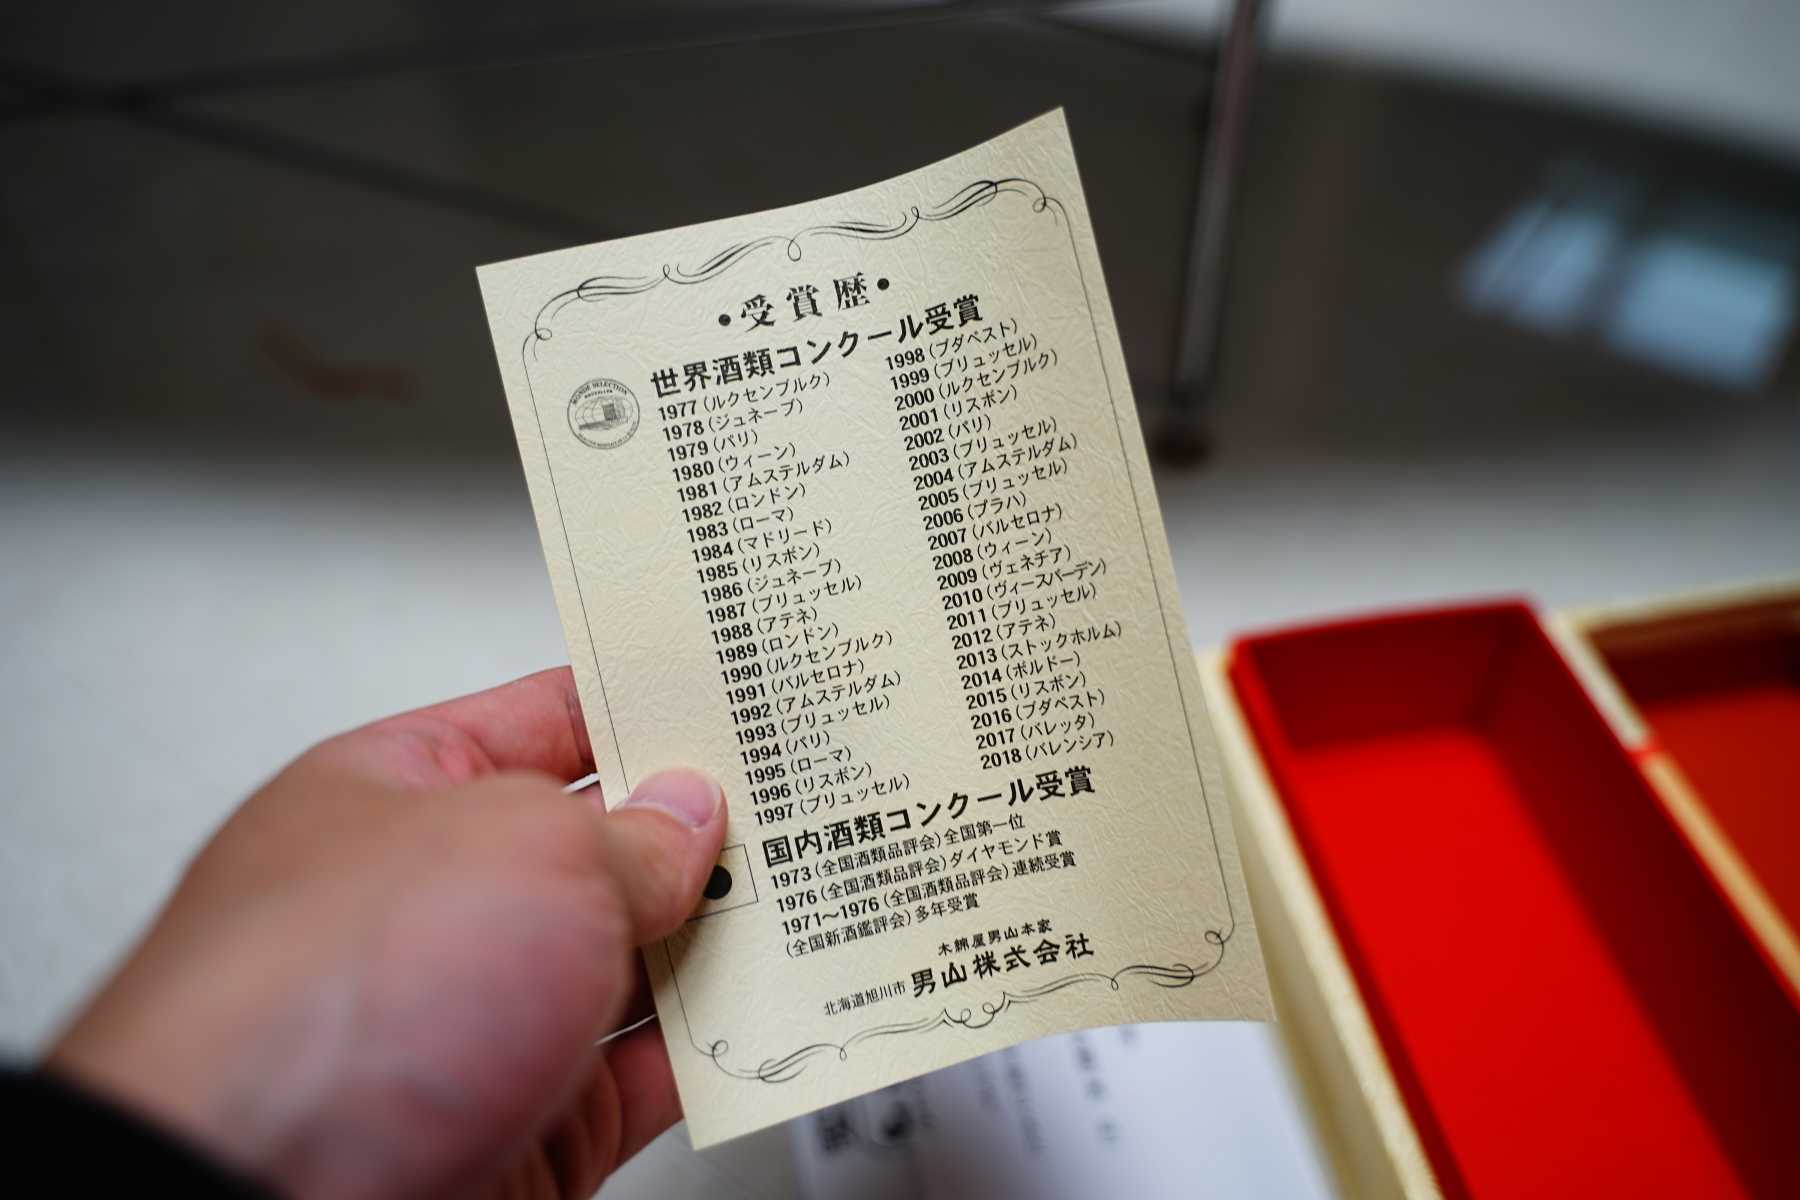 •受賞歴•
世界酒類コンクール受賞
MONDE SELECTION
BRUXELLES
1977(ルクセンブルク)
1978(ジュネーブ)
1979(パリ)
1980(ウィーン)
1981(アムステルダム)
1982(ロンドン)
1983(ローマ)
1984(マドリード)
1985(リスボン)
1986(ジュネーブ)
1987(ブリュッセル)
1988(アテネ)
1989(ロンドン)
1990(ルクセンブルク)
1991(バルセロナ)
1992(アムステルダム)
1993(ブリュッセル)
1994(パリ)
1995(ローマ)
1996(リスボン)
1997(ブリュッセル)
1998(ブダペスト)
1999(ブリュッセル)
2000(ルクセンブルク)
2001(リスボン)
2002(パリ)
2003(ブリュッセル)
2004(アムステルダム)
2005(ブリュッセル)
2006(プラハ)
2007(バルセロナ)
2008(ウィーン)
2009(ヴェネチア)
2010(ヴィースバーデン)
2011(ブリュッセル)
2012(アテネ)
2013(ストックホルム)
2014(ボルドー)
2015(リスボン)
2016(ブダペスト)
2017(バレッタ)
2018(バレンシア)
国内酒類コンクール受賞
1973(全国酒類品評会)全国第一位
1976(全国酒類品評会)ダイヤモンド賞
1971〜1976(全国酒類品評会)連続受賞
(全国新酒鑑評会)多年受賞
木綿屋男山本家
北海道旭川市 男山株式会社